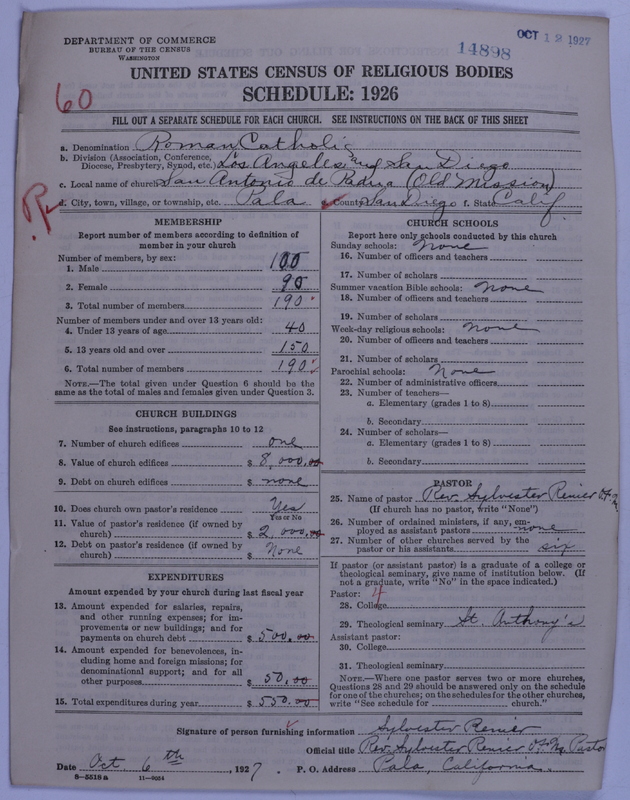 DEPARTMENT OF COMMERCE
BUREAU OF THE CENSUS
WASHINGTON
14898
OCT 12 1927
UNITED STATES CENSUS OF RELIGIOUS BODIES
SCHEDULE: 1926
60
FILL OUT A SEPARATE SCHEDULE FOR EACH CHURCH. SEE INSTRUCTIONS ON THE BACK OF THIS SHEET
a. Denomination Roman Catholic
b. Division (Association, Conference, Diocese, Presbytery, Synod, etc.) Los Angeles and San Diego
c. Local name of church San Antonio de Padua (Old Mission)
d. City, town, village, or township, etc. Pala e. County San Diego f. State Calif.
MEMBERSHIP
Report number of members according to definition of
member in your church
Number of members, by sex:
1. Male 100
2. Female 90
3. Total number of members 190
Number of members under and over 13 years old:
4. Under 13 years of age 40
5. 13 years old and over 150
6. Total number of members 190
NOTE.—The total given under Question 6 should be the
same as the total of males and females given under Question 3.
CHURCH BUILDINGS
See instructions, paragraphs 10 to 12
7. Number of church edifices one
8. Value of church edifices $ 8,000.00
9. Debt on church edifices $ none
10. Does church own pastor's residence Yes
Yes or No
11. Value of pastor's residence (if owned by
church) $ 2,000.00
12. Debt on pastor's residence (if owned by
church) $ None
EXPENDITURES
Amount expended by your church during last fiscal year
13. Amount expended for salaries, repairs,
and other running expenses; for im-
provements or new buildings; and for
payments on church debt $ 500.00
14. Amount expended for benevolences, in-
cluding home and foreign missions; for
denominational support; and for all
other purposes $ 50.00
15. Total expenditures during year $ 550.00
CHURCH SCHOOLS
Report here only schools conducted by this church
Sunday schools: None
16. Number of officers and teachers
17. Number of scholars
Summer vacation Bible schools: None
18. Number of officers and teachers
19. Number of scholars
Week-day religious schools: None
20. Number of officers and teachers
21. Number of scholars
Parochial schools: None
22. Number of administrative officers
23. Number of teachers—
a. Elementary (grades 1 to 8)
b. Secondary
24. Number of scholars—
a. Elementary (grades 1 to 8)
b. Secondary
PASTOR
25. Name of pastor Rev. Sylvester Renier
(If church has no pastor, write "None")
26. Number of ordained ministers, if any, em-
ployed as assistant pastors none
27. Number of other churches served by the
pastor or his assistants six
If pastor (or assistant pastor) is a graduate of a college or
theological seminary, give name of institution below. (If
not a graduate, write "No" in the space indicated.)
Pastor: 4
28. College
29. Theological seminary St. Anthony's
Assistant pastor:
30. College
31. Theological seminary
NOTE.—Where one pastor serves two or more churches,
Questions 28 and 29 should be answered only on the schedule
for one of the churches; on the schedules for the other churches,
write "See schedule for church."
Signature of person furnishing information Sylvester Renier
Official title Rev. Sylvester Renier Pastor
Date Oct. 6th, 1927. P. O. Address Pala, California.
8—5518a 11—9054